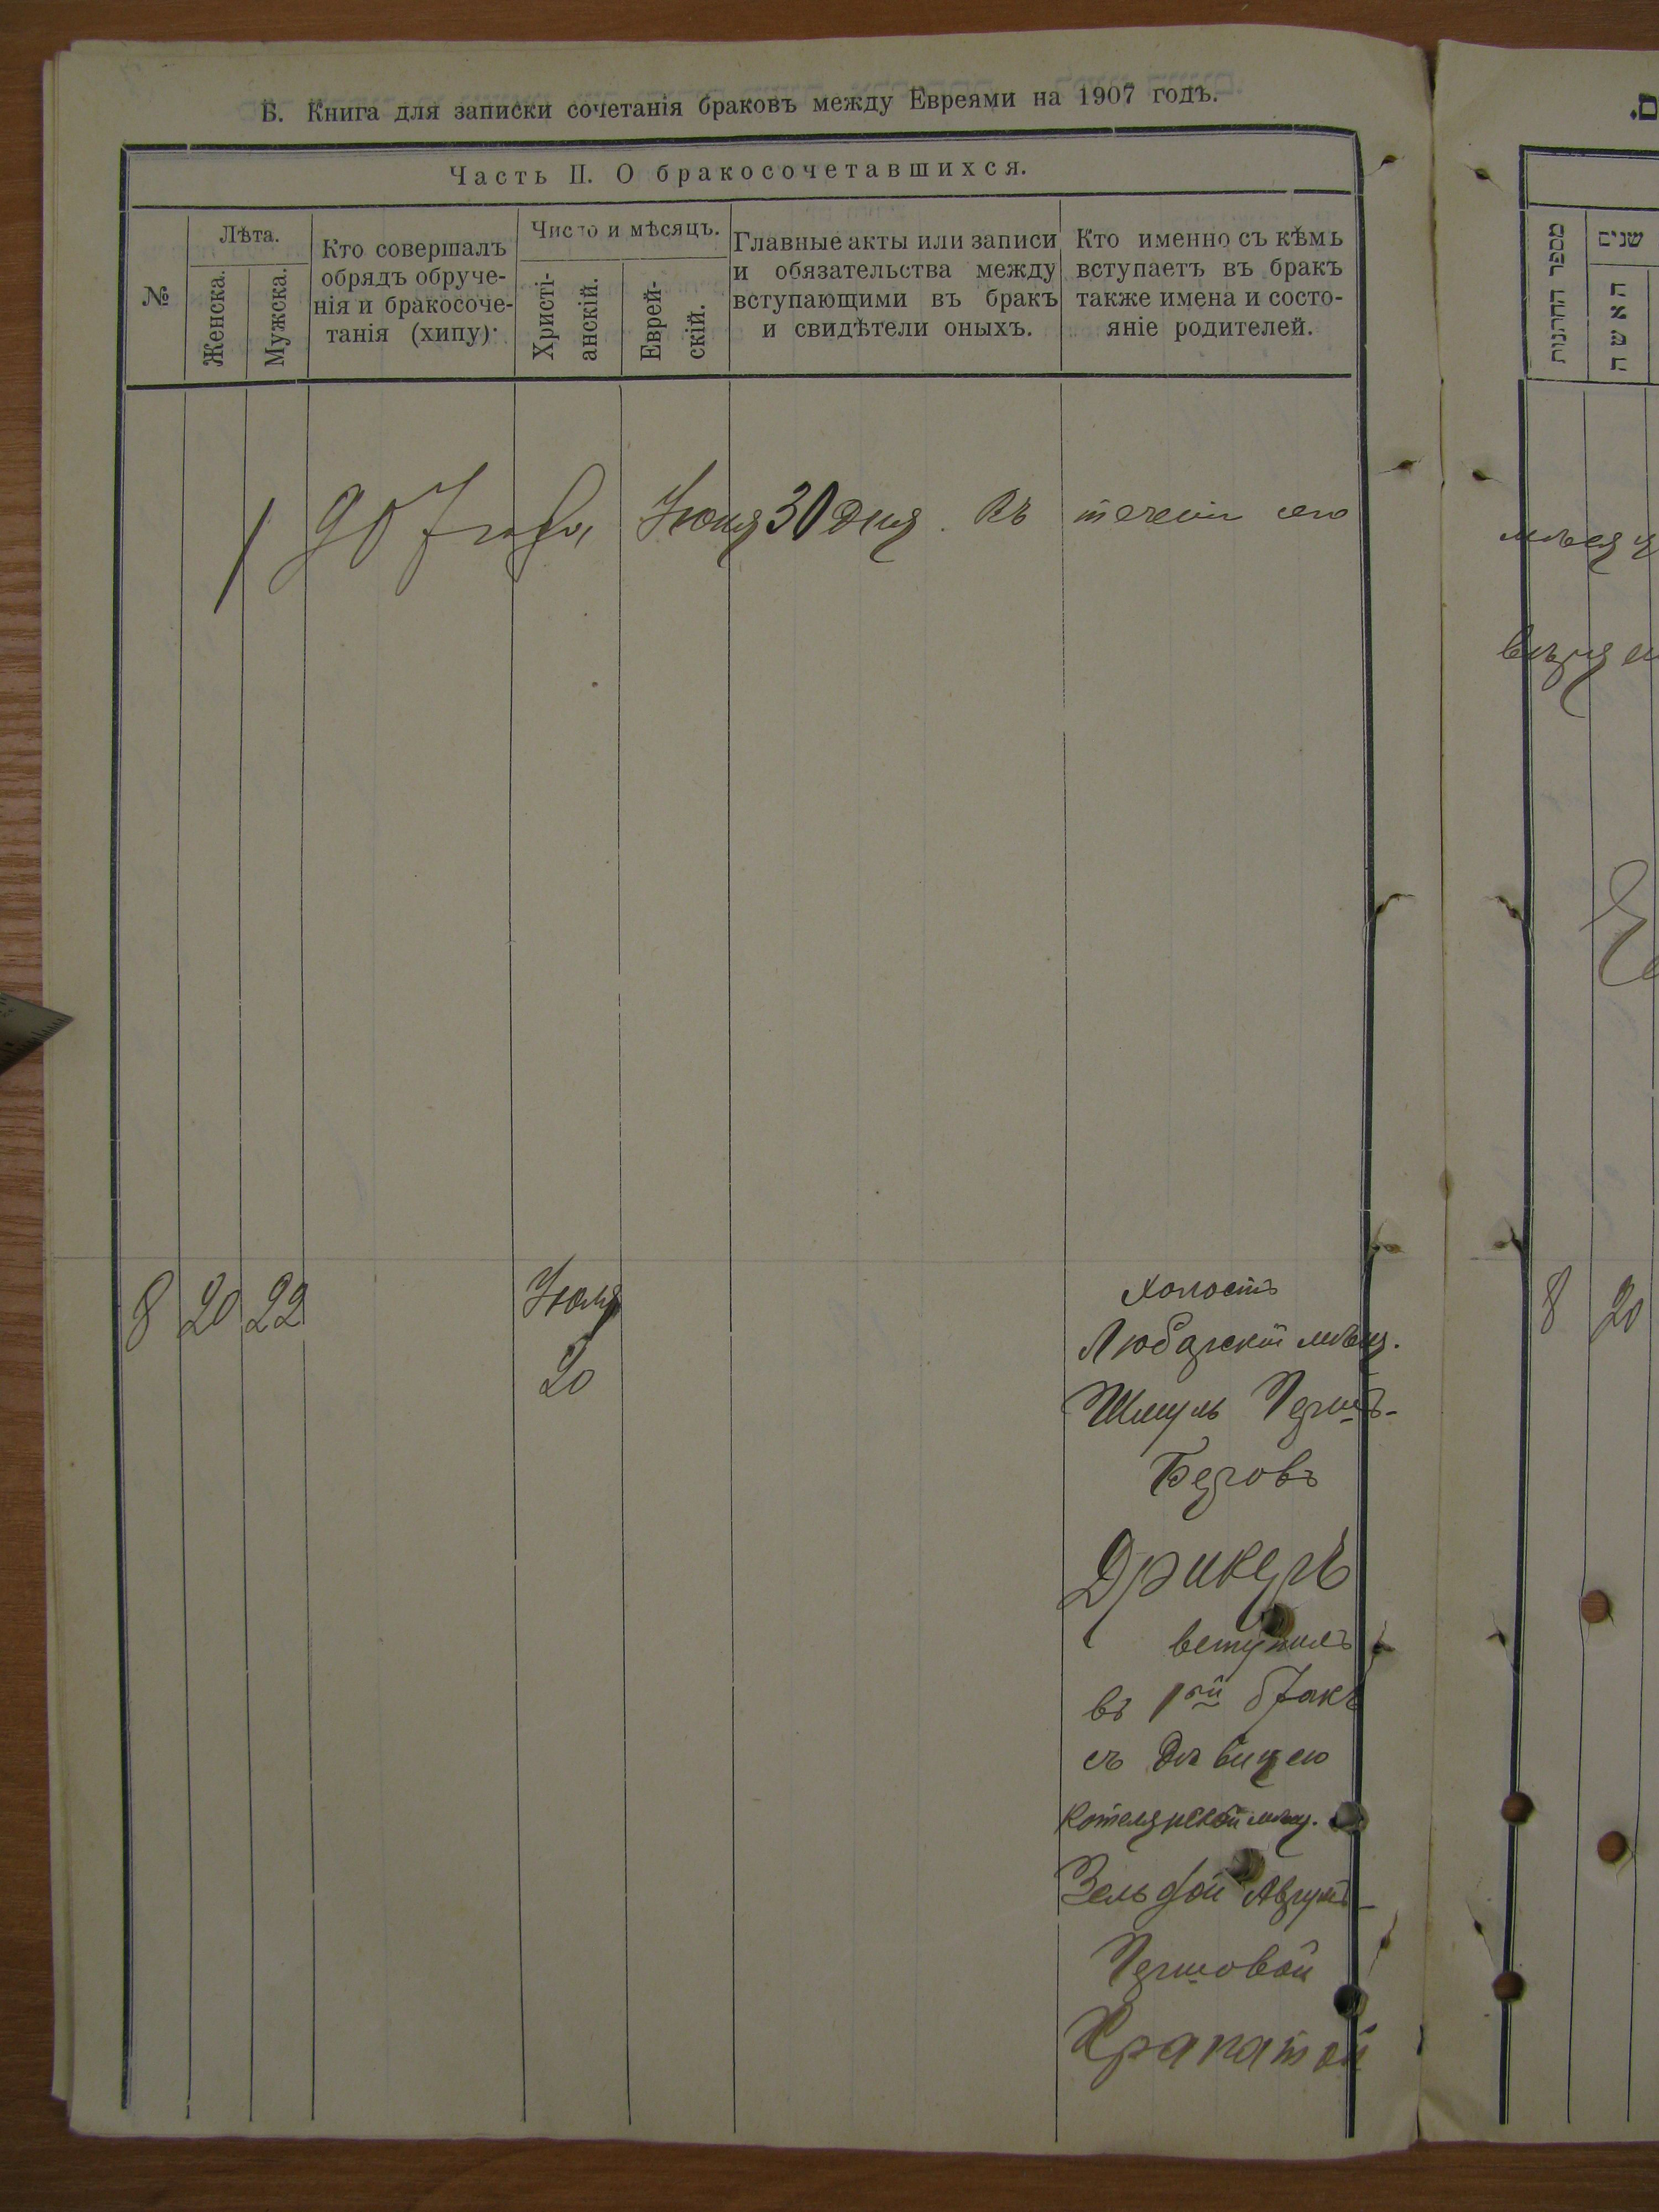 Б. Книга для записки сочетанія браковъ между Евреями на 1907 годъ.
Часть II. О бракосочетавшихся.
№
Лѣта.
Женска.
Мужска.
Кто совершалъ
обрядъ обруче-
нія и бракосоче-
танія (хипу).
Число и мѣсяцъ.
Христі-
анскій.
Еврей-
скій.
Главные акты или записи
и обязательства между
вступающими въ бракъ
и свидѣтели оныхъ.
Кто именно съ кѣмъ
вступаетъ въ бракъ
также имена и состо-
яніе родителей.
1907 года Іюня 30 дня. Въ течении сего
8 20 22
Іюля
20
холостъ
Любарскій мѣщ.
Шмуль Герш-
Беровъ
Дрикеръ
вступилъ
въ 1ой бракъ
съ дѣвицею
Котелянской мѣщ.
Зельдой Аврум-
Гершовой
Храпатой
מספר החתנות
שנים
האשה
мѣсяц
8 20